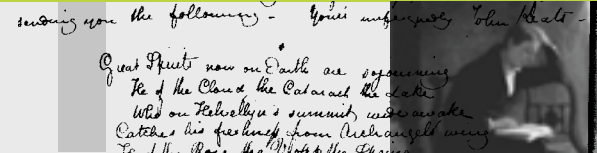 sending you the following – Yours unfeignedly John Keats –
Great Spirits now on Earth are sojourning
He of the Cloud, the Cataract the Lake
Who on Helvellyn's summit wide awake
Catches his freshness from Archangel's wing
He of the Rose, the Violet the Spring